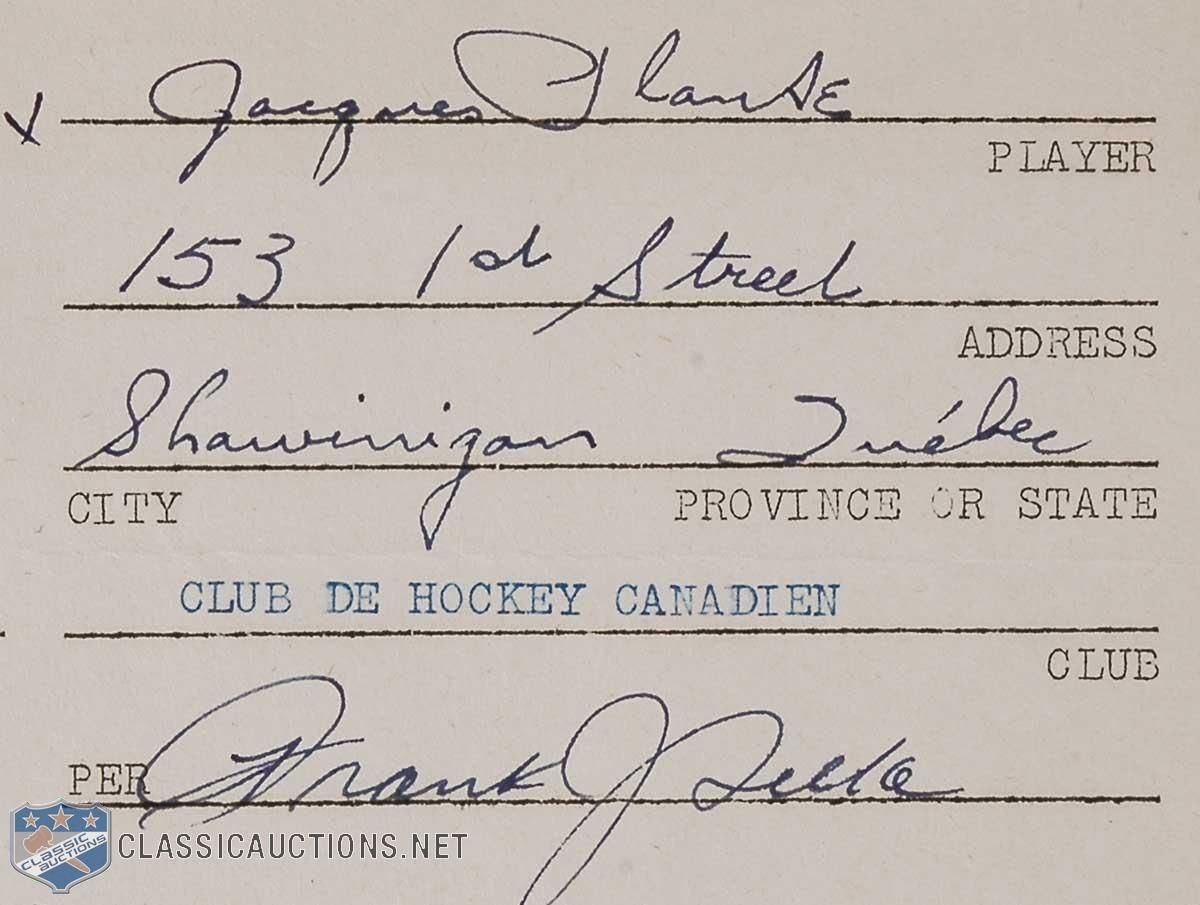 x Jacques Plante
PLAYER
153 1st Street
ADDRESS
Shawinigan Québec
CITY PROVINCE OR STATE
CLUB DE HOCKEY CANADIEN
CLUB
PER Frank J Selke
CLASSIC AUCTIONS CLASSICAUCTIONS.NET